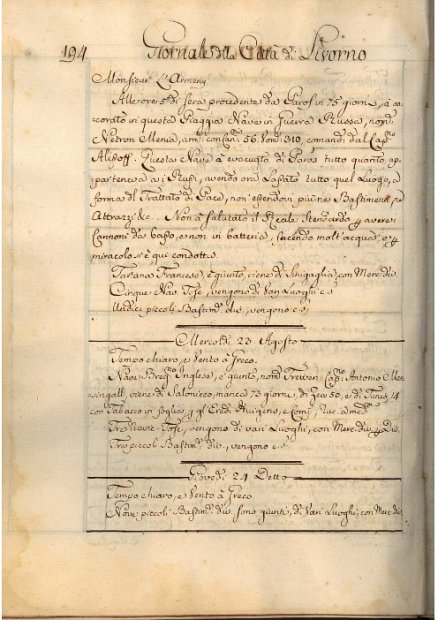 194 Giornale della Città di Livorno
Monsieur L'Armeny
Alle ore 5 di sera procedente da Paros in 75 giorni, è an
corato in questa Piaggia Nave in Guerra Russa, nom:
Netron Menia, arm: con Can: 56. Uom: 310, comand: dal Cap:no
Alissoff. Questa Nave à evacuato di Paros tutto quanto ap
parteneva a i Russi, avendo ora lasciato tutto quel Luogo, a
forma del Trattato di Pace, non essendovi più ne Bastimenti, ne
Attrazzi &c. Non à salutato il Reale Stendardo p avere i
Cannoni da basso, e non in batteria, facendo molt'acqua, e p
miracolo s'è qui condotta.
Tartana Francese, è giunto, viene di Sinigaglia, con Merc: div:
Cinque Nav: Tosc:, vengono di Vari Luoghi e s:
Undici piccoli Bastim: div:, vengono e s:
Mercoldì 23 Agosto
Tempo chiaro, e Vento à Greco.
Nave Brig: Inglese, è giunto, nom: Trewen: Cap: Antonio Mar
viene di Salonicco, manca 73 giorni, di Zeo 50, e di Tunis 14
con Tabacco in foglia, p gl' Eredi Huigens, e Comp:
Tre Navi: Tosc:, vengono di vari Luoghi, con Merc: div:
Tre piccoli Bastim: div:, vengono e s:
Giovedì 24 Detto
Tempo chiaro, e Vento à Greco.
Nove piccoli Bastim: div: sono giunti, di Vari Luoghi, con Merc: div: